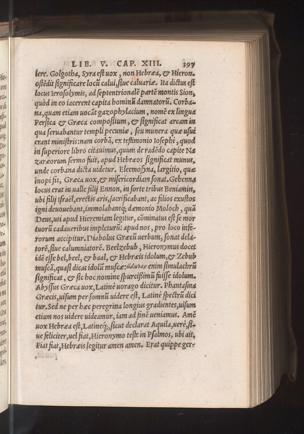 LIB. V. CAP. XIII. 197
lere. Golgotha, Syra est uox, non Hebræa, & Hieron.
ostēdit significare locū calui, siue caluariæ. Ita dictus est
locus Ierosolymis, ad septentrionalē partē montis Sion,
quòd in eo iacerent capita hominū damnatorū. Corba-
na, quam etiam uocāt gazophylacium, nomē ex lingua
Persica & Græca compositum, & significat arcam in
qua seruabantur templi pecuniæ, seu munera quæ usui
erant ministris: nam corbā, ex testimonio Iosephi, quod
in superiore libro citauimus, quum de radēdo capite Na
zaræorum sermo fuit, apud Hebræos significat munus,
unde corbana dicta uidetur. Eleemosyna, largitio, quæ
inopi fit, Græca uox, & misericordiam sonat. Gehenna
locus erat in ualle filij Ennon, in sorte tribus Beniamin,
ubi filij Israël, erectis aris, sacrificabant, ac filios exustos
igni deuouebant, immolabantq; dæmonio Moloch, quā
Deus, ubi apud Hieremiam legitur, cōminatus est se mor
tuorū cadaueribus impleturū: apud nos, pro loco infe-
rorum accipitur. Diabolus Græcū uerbum, sonat dela-
torē, siue calumniatorē. Beelzebub, Hieronymus docet
idē esse bel, beel, & baal, & Hebræis idolum, & Zebub
muscā, quasi dicas idolū muscæ: enim simulachrū
significat, & sic hoc nomine spurcissimū fuisse idolum.
Abyssus Græca uox, Latinè uorago dicitur. Phantasma
Græcis, uisum per somnū uidere est, Latinè spectrū dici
tur. Sed ne per hæc peregrina longius gradientes, uisum
etiam nos uidere uideamur, iam ad finē ueniamus. Amē
uox Hebræa est, Latineq́;, sicut declarat Aquila, uerè, si-
ue feliciter, uel fiat, Hieronymo teste in Psalmos, ubi ait,
Fiat fiat, Hebræis legitur amen amen. Erat quippe ger-